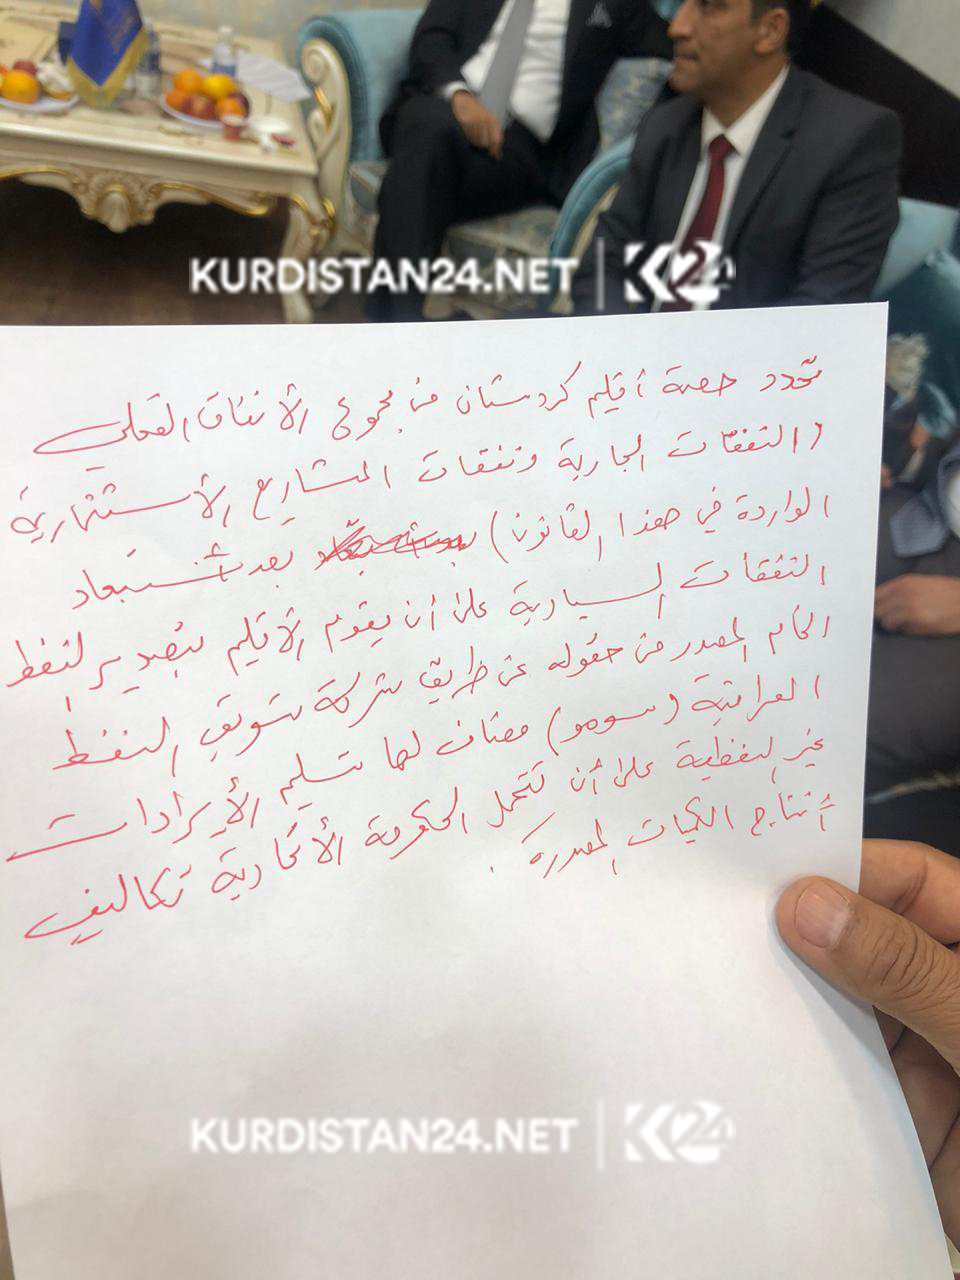 KURDISTAN24.NET | K24
تحدد حصة أقليم كردستان من مجموع الأنفاق الفعلي
(النفقات الجارية ونفقات المشاريع الأستثمارية
الواردة في هذا القانون) بعد أستبعاد
النفقات السيادية على أن يقوم الأقليم بتصدير النفط
الخام المصدر من حقوله عن طريق شركة تسويق النفط
العراقية (سومو) مضاف لها تسليم الأيرادات
غير النفطية على أن تتحمل الحكومة الأتحادية تكاليف
أنتاج الكميات المصدرة .
KURDISTAN24.NET | K24